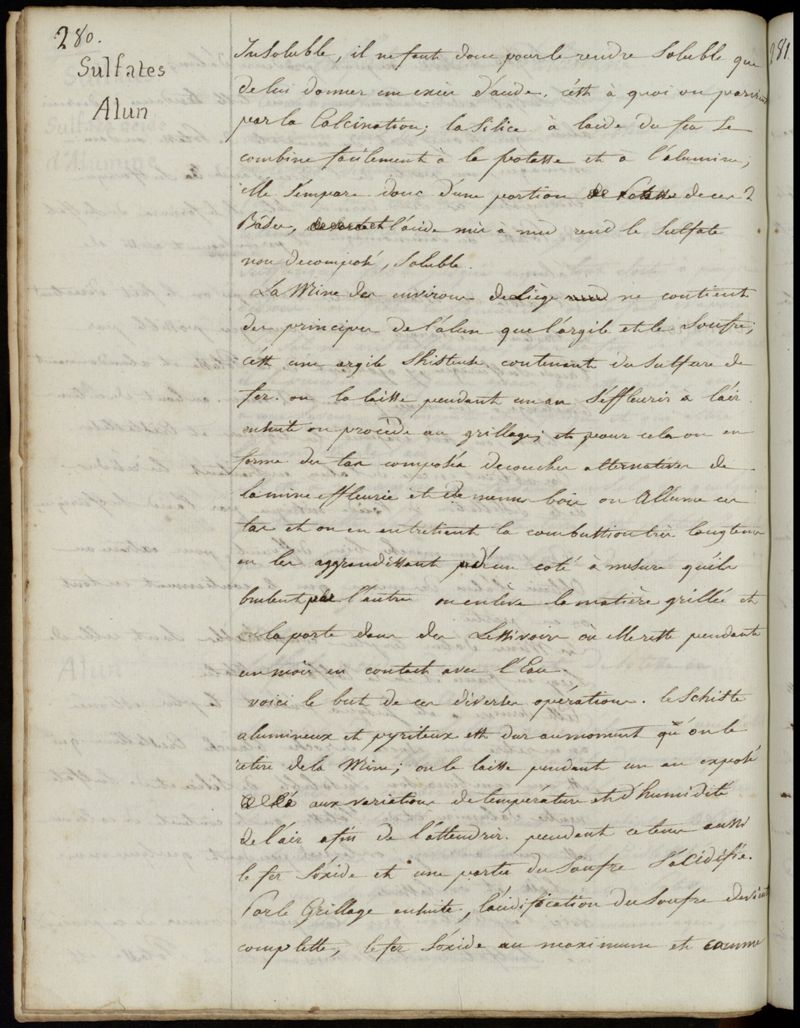 280.
Sulfates
Alun
Insoluble, il ne faut donc pour le rendre soluble que
de lui donner un excès d'acide. c'est à quoi on parvient
par la Calcination; la Silice à l'aide du feu se
combine facilement à la potasse et à l'alumine;
elle s'empare donc d'une portion de Potasse de ces 2
Bases, l'acide mis à nud rend le Sulfate
non decomposé, soluble.
La Mine des environs de Liège ne contient
des principes de l'alun que l'argile et le Soufre;
c'est une argile Skisteuse contenant du Sulfure de
fer. on la laisse pendant un an s'effleurir à l'air
ensuite on procède au grillage; et pour cela on en
forme des tas composés de couches alternatives de
la mine effleurie et de menu bois on Allume ces
tas et on en entretient la combustion très longtems
en les aggrandissant d'un coté à mesure qu'ils
brulent de l'autre on enlève la matière grillée et
on la porte dans des Lessivoirs où elle reste pendant
un mois en contact avec l'Eau.
voici le but de ces diverses opérations. le Schiste
alumineux et pyriteux est dur au moment qu'on le
retire de la Mine; on le laisse pendant un an exposé
aux variations de température et d'humidité
de l'air afin de l'attendrir. pendant ce tems aussi
le fer s'oxide et une partie du Soufre s'acidifie.
Par le Grillage ensuite, l'acidification du Soufre devient
complette, le fer s'oxide au maximum et comme
281.